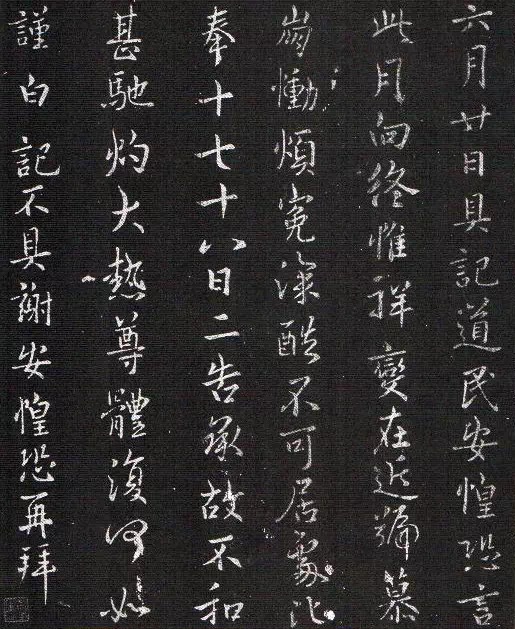 六月廿日具記道民安惶恐言
此月向終惟祥變在近號慕
崩慟煩冤深酷不可居處比
奉十七十八日二告承故不和
甚馳灼大熱尊體復何如
謹白記不具謝安惶恐再拜